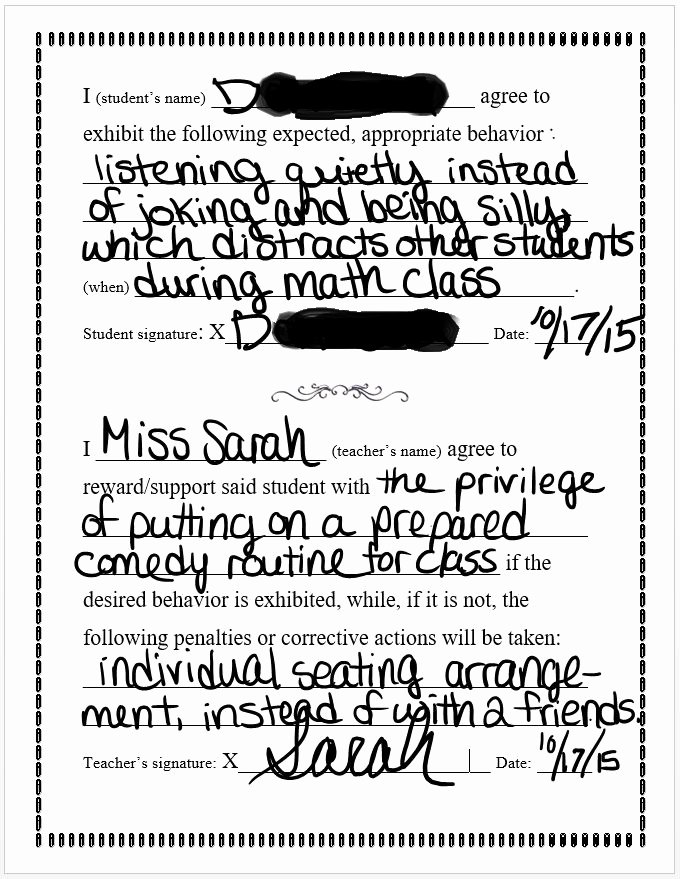 I (student's name) D agree to
exhibit the following expected, appropriate behavior :
listening quietly instead
of joking and being silly,
which distracts other students
(when) during math class .
Student signature: X D Date: 10/17/15
I Miss Sarah (teacher's name) agree to
reward/support said student with the privilege
of putting on a prepared
comedy routine for class if the
desired behavior is exhibited, while, if it is not, the
following penalties or corrective actions will be taken:
individual seating arrange-
ment, instead of with 2 friends.
Teacher's signature: X Sarah Date: 10/17/15